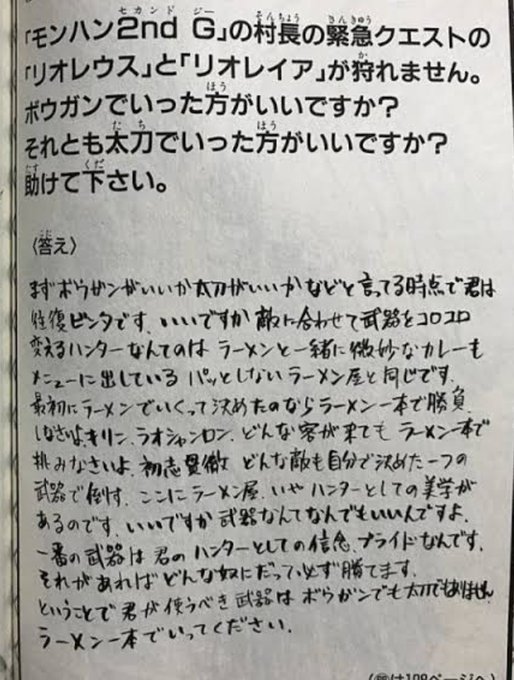 「モンハン2nd G」の村長の緊急クエストの
「リオレウス」と「リオレイア」が狩れません。
ボウガンでいった方がいいですか?
それとも太刀でいった方がいいですか?
助けて下さい。
〈答え〉
まずボウガンがいいか太刀がいいかなどと言ってる時点で君は
往復ビンタです。いいですか敵に合わせて武器をコロコロ
変えるハンターなんてのはラーメンと一緒に微妙なカレーも
メニューに出しているパッとしないラーメン屋と同じです。
最初にラーメンでいくって決めたのならラーメン一本で勝負
しなさいよ。キリン、ラオシャンロン、どんな客が来てもラーメン一本で
挑みなさいよ。初志貫徹 どんな敵も自分で決めた一つの
武器で倒す。ここにラーメン屋、いやハンターとしての美学が
あるのです。いいですか武器なんてなんでもいいんですよ。
一番の武器は君のハンターとしての信念、プライドなんです。
それがあればどんな奴にだって必ず勝てます。
ということで君が使うべき武器はボウガンでも太刀でもありません
ラーメン一本でいってください。